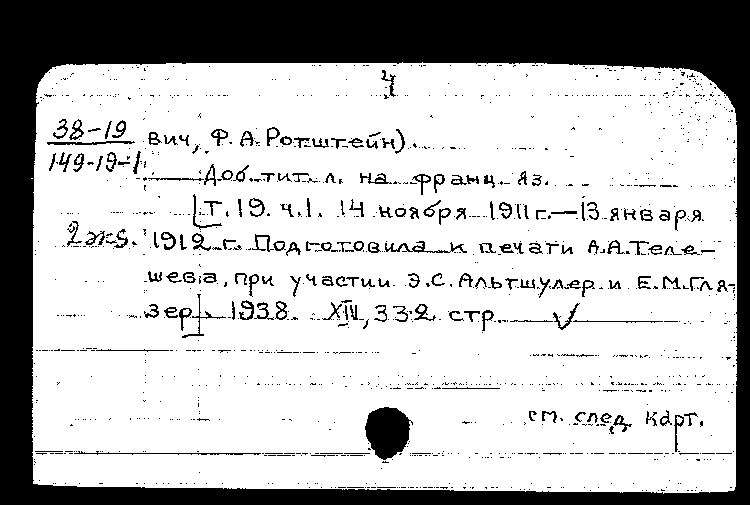 4
38-19 вич, Ф. А. Ротштейн).
149-19-1
Доб. тит. л. на франц. яз.
Т. 19. ч. 1. 14 ноября 1911 г. — 13 января
2 экз. 1912 г. Подготовила к печати А.А. Теле-
шева, при участии Э.С. Альтшулер и Е.М. Гля-
зер. 1938. XIV, 332 стр. ✓
см. след. карт.